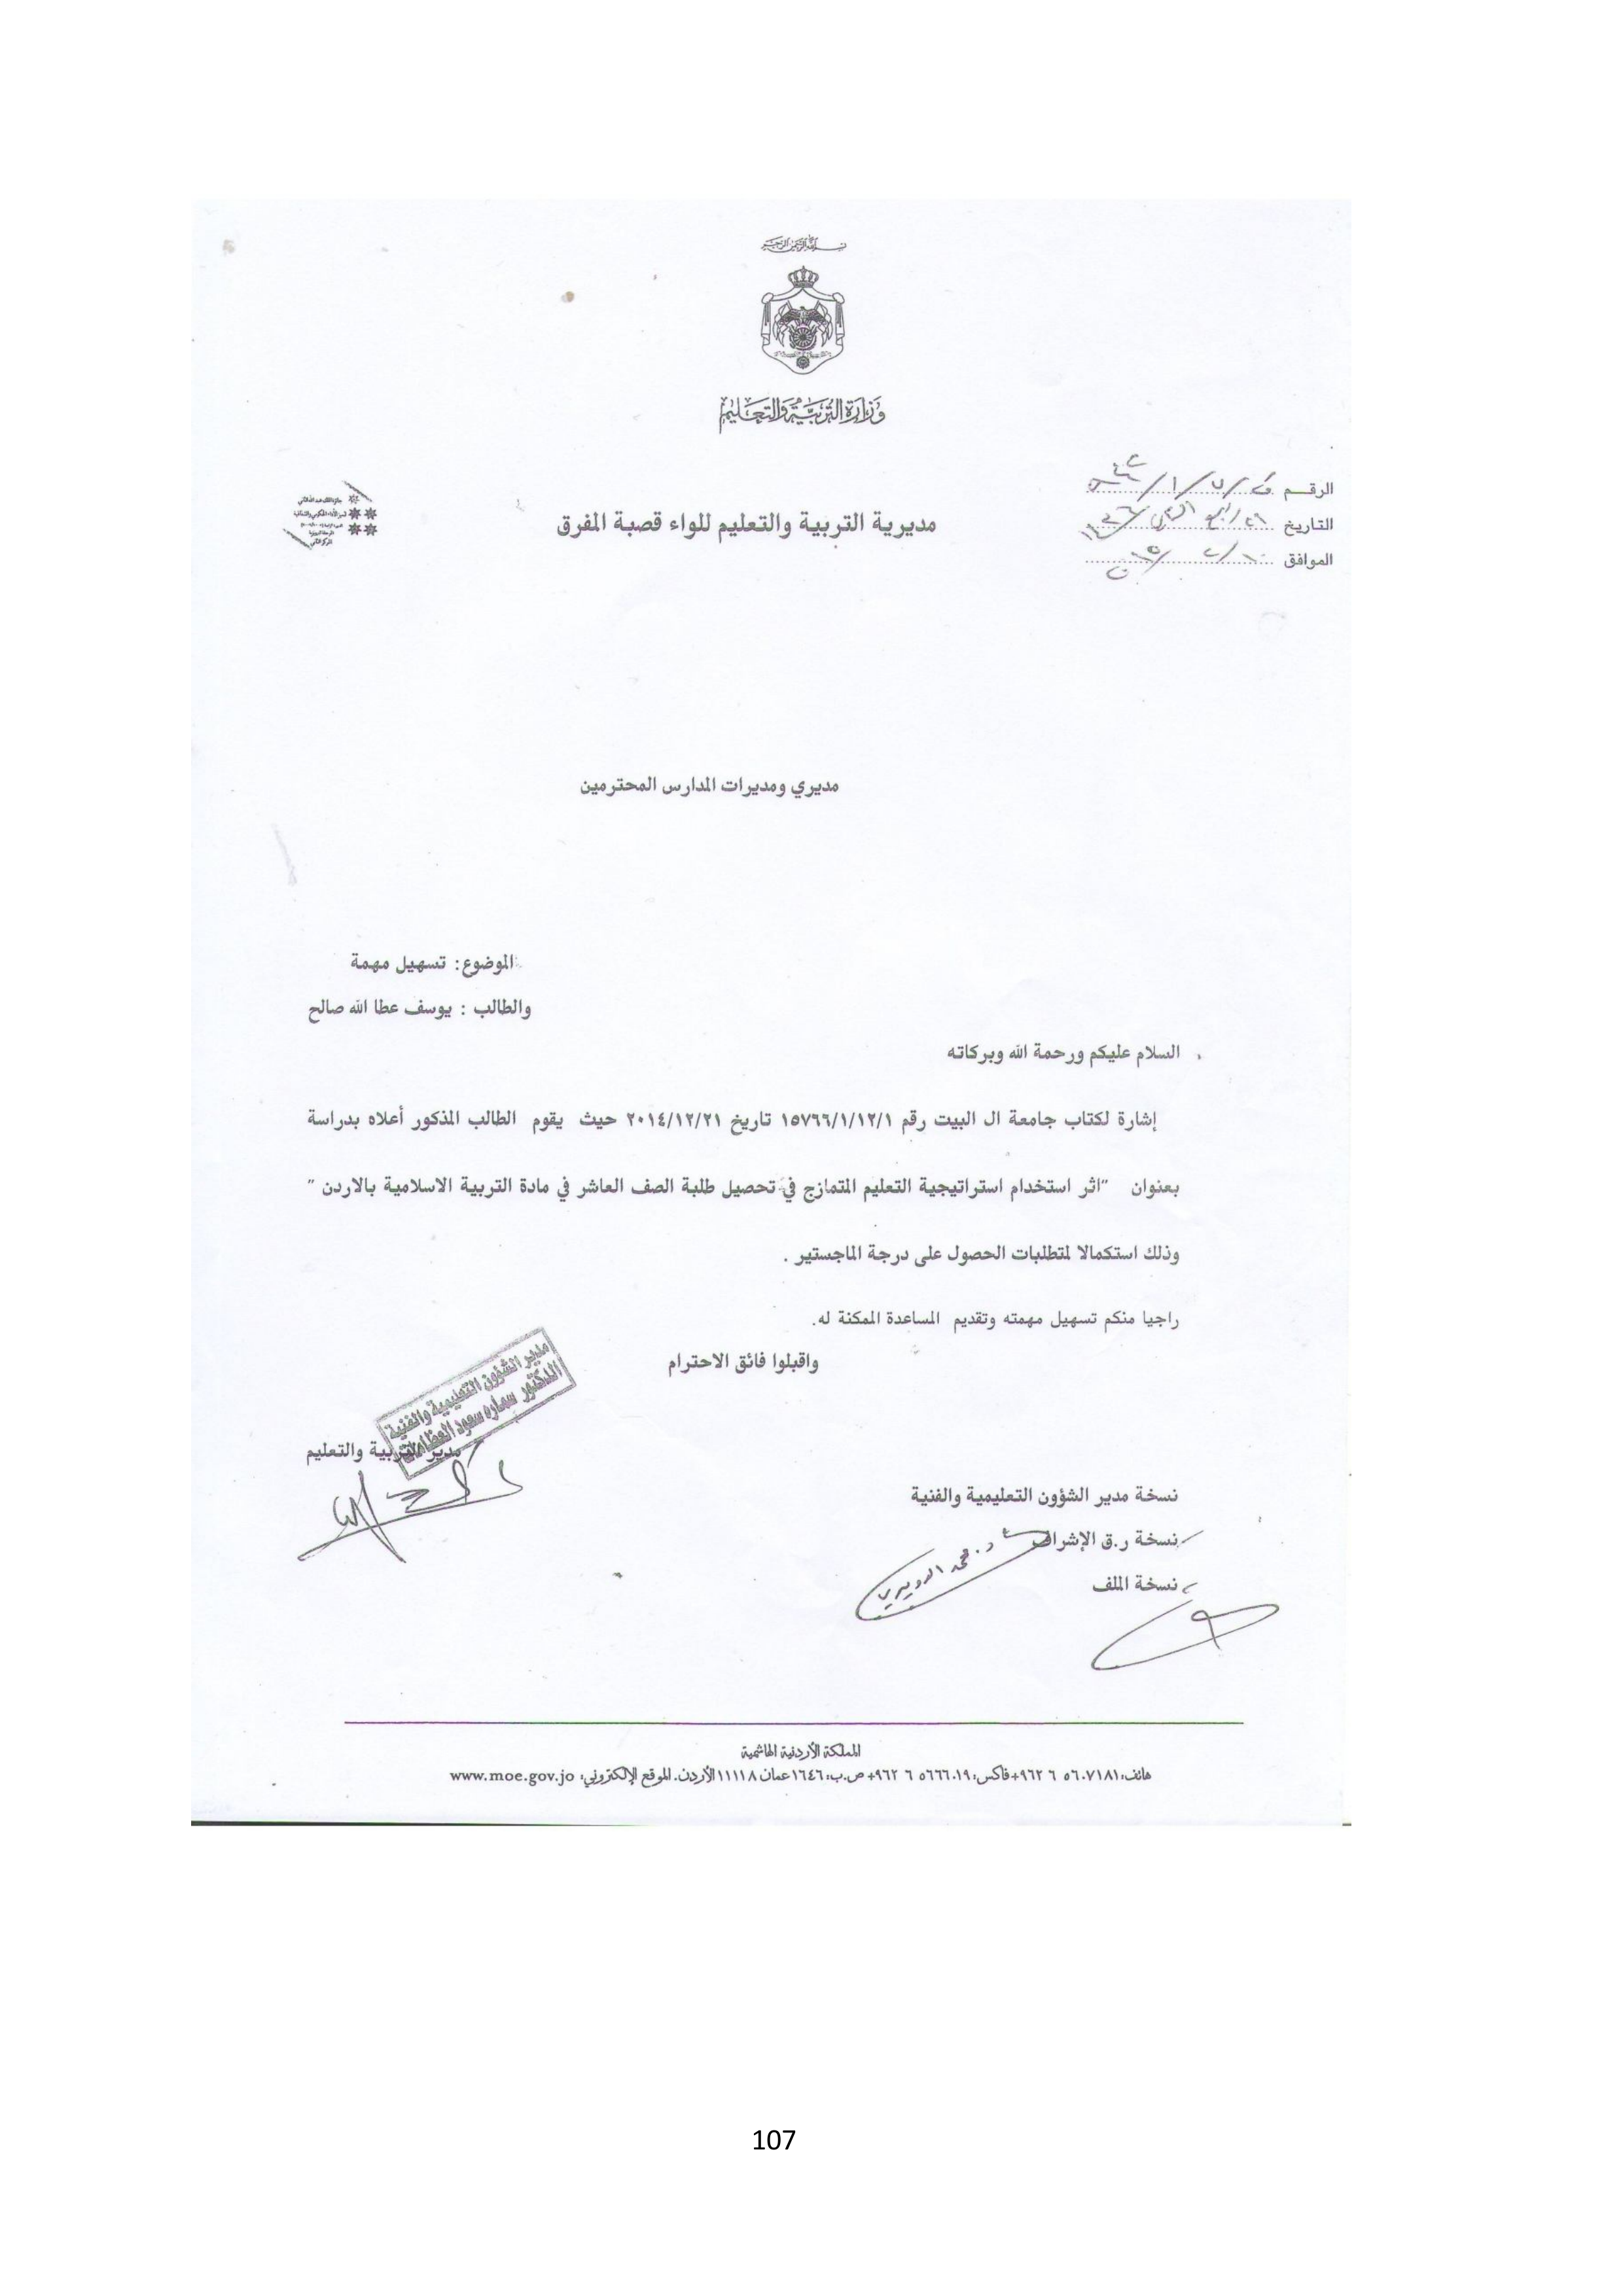 بسم الله الرحمن الرحيم
وزارة التربية والتعليم
الرقم
التاريخ ٢١ ربيع الثاني ١٤٣٦
الموافق ٢٠١٥/٢/١٠
مديرية التربية والتعليم للواء قصبة المفرق
مديري ومديرات المدارس المحترمين
الموضوع: تسهيل مهمة
والطالب : يوسف عطا الله صالح
السلام عليكم ورحمة الله وبركاته
إشارة لكتاب جامعة ال البيت رقم ١٥٧٦٦/١/١٢/١ تاريخ ٢٠١٤/١٢/٢١ حيث يقوم الطالب المذكور أعلاه بدراسة
بعنوان "اثر استخدام استراتيجية التعليم المتمازج في تحصيل طلبة الصف العاشر في مادة التربية الاسلامية بالاردن "
وذلك استكمالا لمتطلبات الحصول على درجة الماجستير .
راجيا منكم تسهيل مهمته وتقديم المساعدة الممكنة له.
واقبلوا فائق الاحترام
مدير الشؤون التعليمية والفنية
الدكتور سماره سعود العظامات
مدير التربية والتعليم
نسخة مدير الشؤون التعليمية والفنية
نسخة ر.ق الإشراف د. محمد
نسخة الملف
المملكة الأردنية الهاشمية
هاتف: ٥٦٠٧١٨١ ٦ ٩٦٢+ فاكس: ٥٦٦٦٠١٩ ٦ ٩٦٢+ ص.ب: ١٦٤٦ عمان ١١١١٨ الأردن. الموقع الإلكتروني: www.moe.gov.jo
107